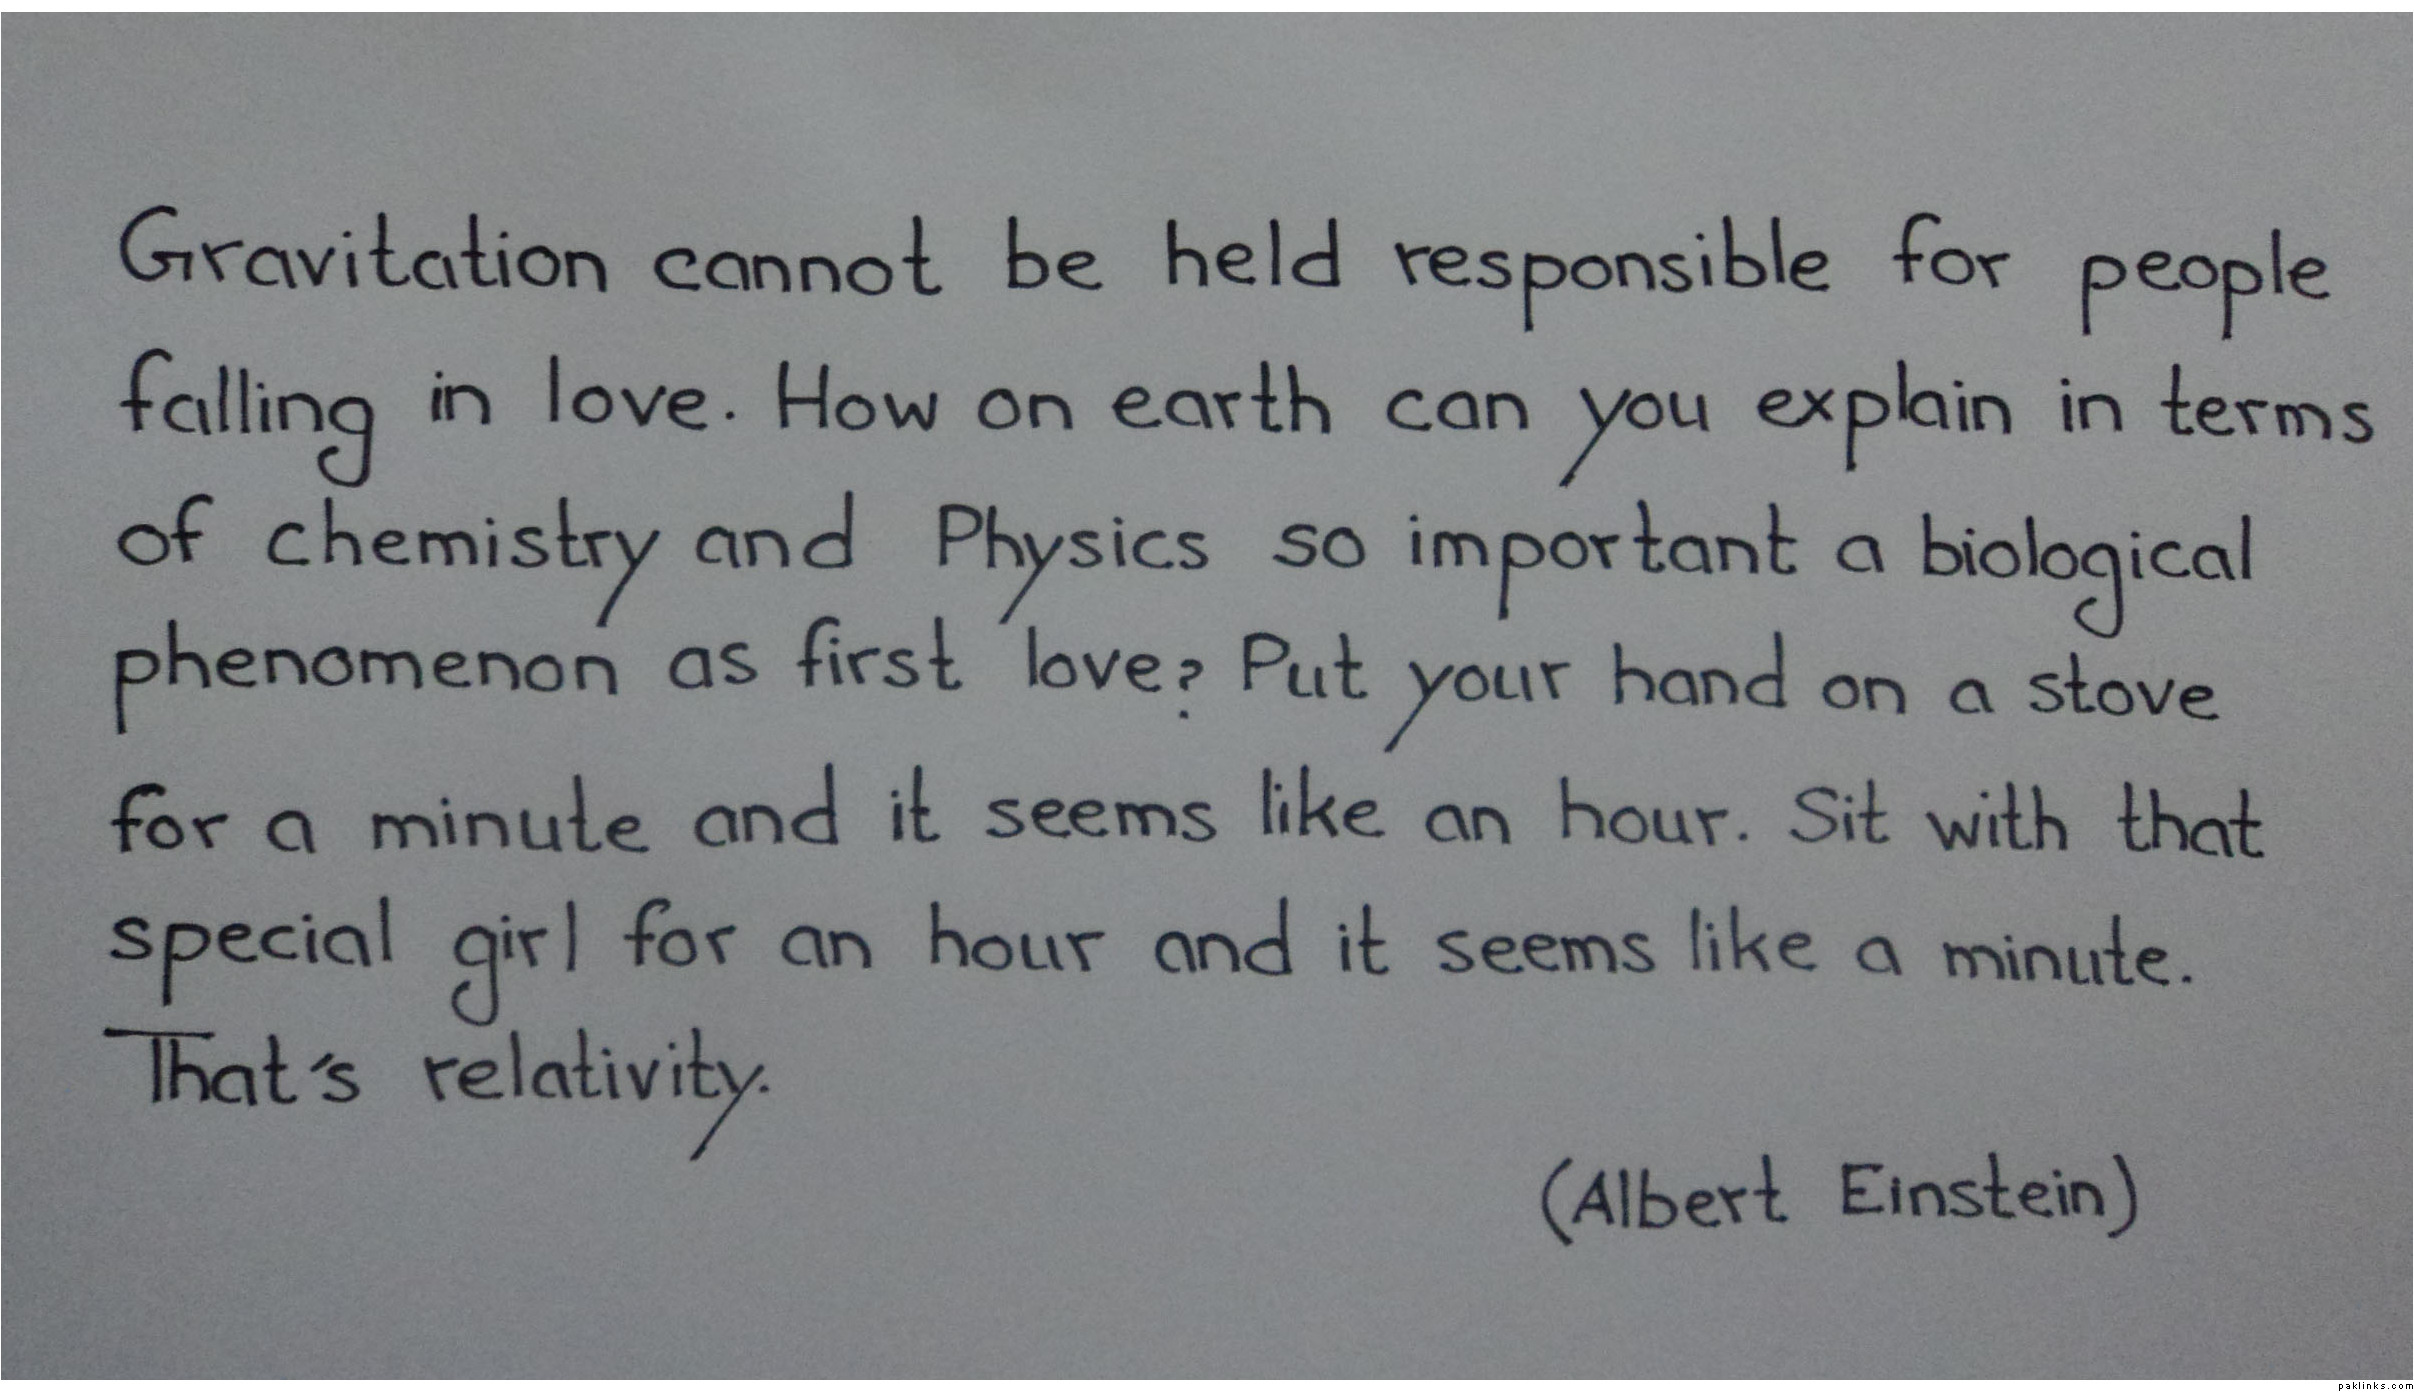 Gravitation cannot be held responsible for people
falling in love. How on earth can you explain in terms
of chemistry and Physics so important a biological
phenomenon as first love? Put your hand on a stove
for a minute and it seems like an hour. Sit with that
special girl for an hour and it seems like a minute.
That's relativity.
(Albert Einstein)
paklinks.com